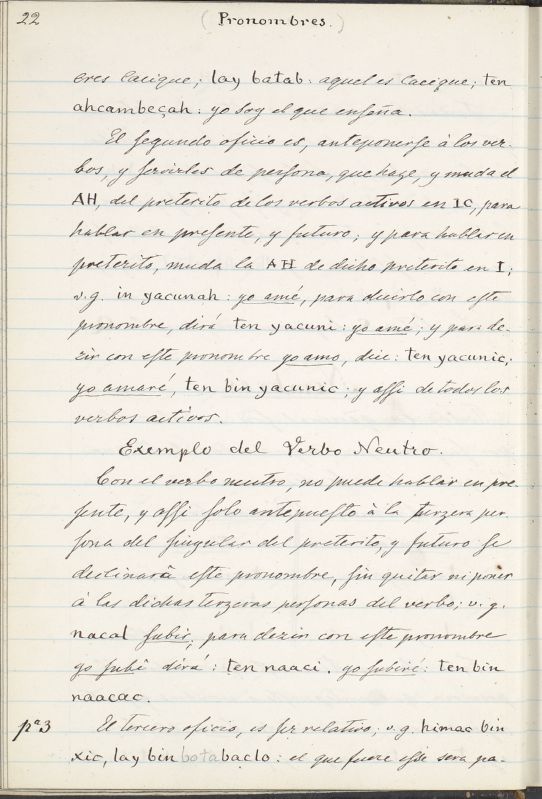 22 (Pronombres.)
eres Cacique; lay batab: aquel es Cacique; ten
ahcambeçah: yo soy el que enseña.
El segundo oficio es, anteponerse à los ver-
bos, y servirles de persona, que haze, y muda el
AH, del preterito de los verbos activos en IC, para
hablar en presente, y futuro; y para hablar en
preterito, muda la AH de dicho preterito en I;
v.g. in yacunah: yo amé, para dezirlo con este
pronombre, dirá ten yacuni: yo amé; y para de-
zir con este pronombre yo amo, dize: ten yacunic;
yo amaré, ten bin yacunic; y assi de todos los
verbos activos.
Exemplo del Verbo Neutro.
Con el verbo neutro, no puede hablar en pre
sente, y assi solo antepuesto à la terzera per
sona del singular del preterito, y futuro se
declinarà este pronombre, sin quitar ni poner
à las dichas terzeras personas del verbo; v.g.
nacal subir; para dezir con este pronombre
yo subì dirá: ten naaci. yo subiré: ten bin
naacac.
pª3 El tercero oficio, es ser relativo; v.g. himac bin
xic, lay bin botabaclo: el que fuere esse sera pa-